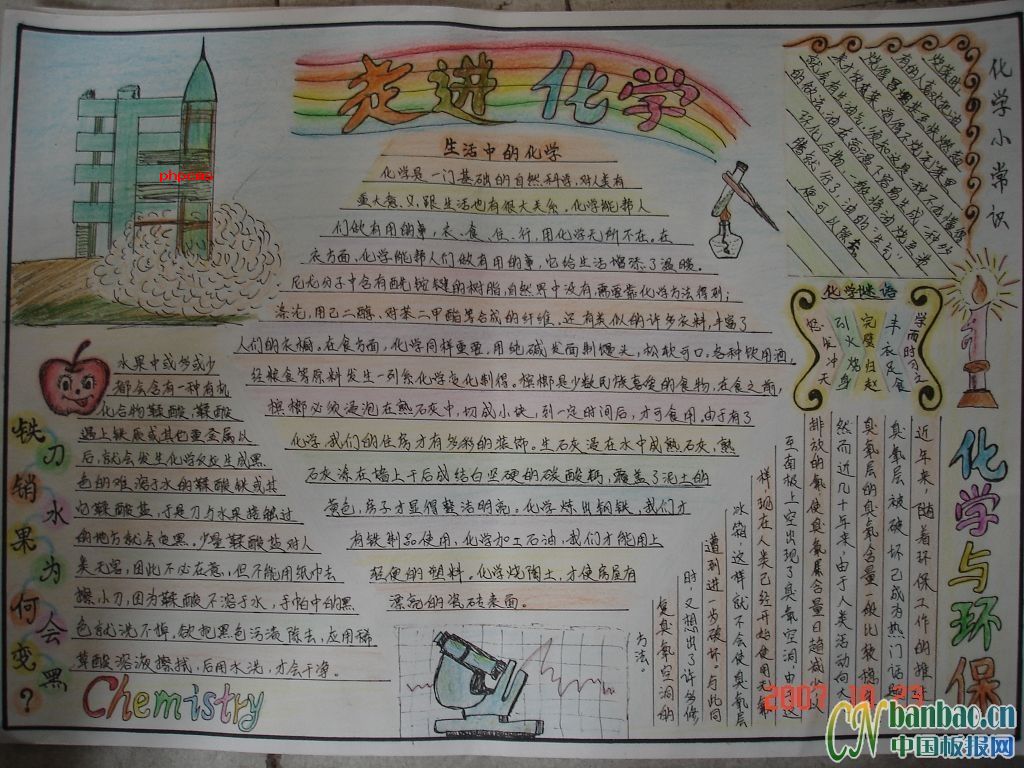 走进 化学
生活中的化学
化学是一门基础的自然科学,对人类有
重大意义,跟生活也有很大关系。化学能帮人
们做有用的事,衣、食、住、行,用化学无所不在。在
衣方面,化学能帮人们做有用的事,它给生活增添了温暖。
尼龙分子中含有酰胺键的树脂,自然界中没有,需要靠化学方法得到;
涤沦,用乙二醇、对苯二甲酯等合成的纤维。还有类似的许多衣料,丰富了
人们的衣橱。在食方面,化学同样重要,用纯碱发面制馒头,松软可口。各种饮用酒,
经粮食等原料发生一列系化学变化制得。槟榔是少数民族喜爱的食物,在食之前,
槟榔必须浸泡在熟石灰中,切成小块,到一定时间后,才可食用。由于有了
化学,我们的住房才有多彩的装饰。生石灰浸在水中成熟石灰,熟
石灰涂在墙上干后成结白坚硬的碳酸钙,覆盖了泥土的
黄色,房子才显得整洁明亮。化学炼出钢铁,我们才
有铁制品使用,化学加工石油,我们才能用上
轻便的塑料。化学烧陶土,才使房屋有
漂亮的瓷砖表面。
铁刀销水果为何会变黑?
水果中或多或少
都会含有一种有机
化合物鞣酸,鞣酸
遇上铁质或其他重金属以
后,就会发生化学反应生成黑
色的难溶于水的鞣酸铁或其
它鞣酸盐,于是刀与水果接触过
的地方就会变黑。少量鞣酸盐对人
类无害,因此不必在意,但不能用纸巾去
擦小刀,因为鞣酸不溶于水,手帕中的黑
色就洗不掉,欲把黑色污渍除去,应用稀
草酸溶液擦拭,后用水洗,才会干净。
Chemistry
化学小常识
炒菜时,
有的人喜欢把油
化学谜语
学而时习之
丰衣足食
完璧归赵
引火烧身
怒发冲天
化学与环保
近年来,随着环保工作的推进
臭氧层被破坏已成为热门话题
臭氧层的臭氧含量一般比较稳
然而近几十年来,由于人类活动向大
排放的氟使臭氧层含量日趋减少
至南极上空出现了臭氧空洞,由于这
样,现在人类已经开始使用无氟
冰箱,这样就不会使臭氧层
遭到进一步破坏。与此同
时,又想出了许多修
复臭氧空洞的
方法。
phpcms
2007
CN banbao.cn
中国板报网